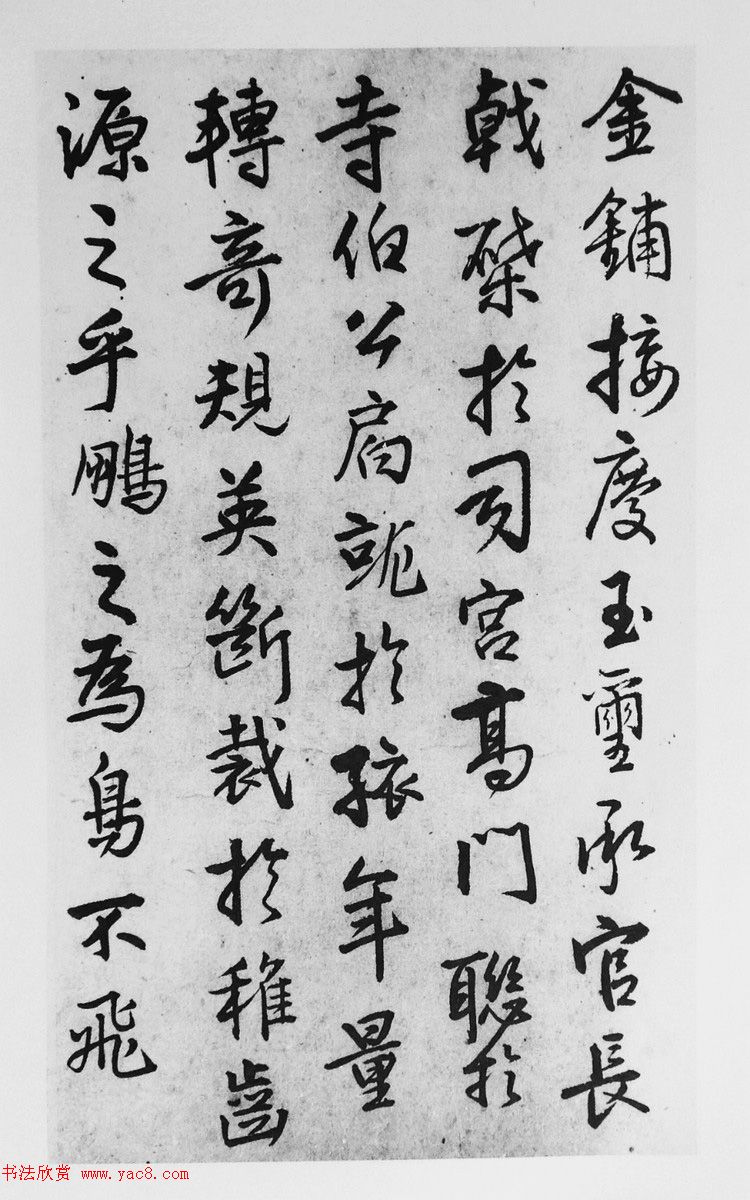 金鋪接慶玉璽承官長
戟棨於司宮高門聯於
寺伯公扃於孩年量
轉奇規英斷裁於稚齒
源之乎鵬之為鳥不飛
书法欣赏 www.yac8.com